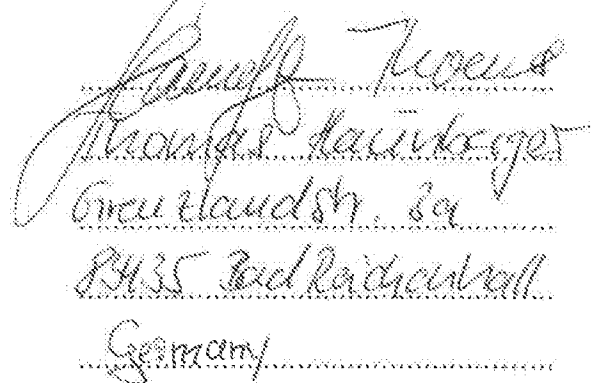 Thomas
Thomas Hainberger
Grenzlandstr. 8a
83435 Bad Reichenhall
Germany